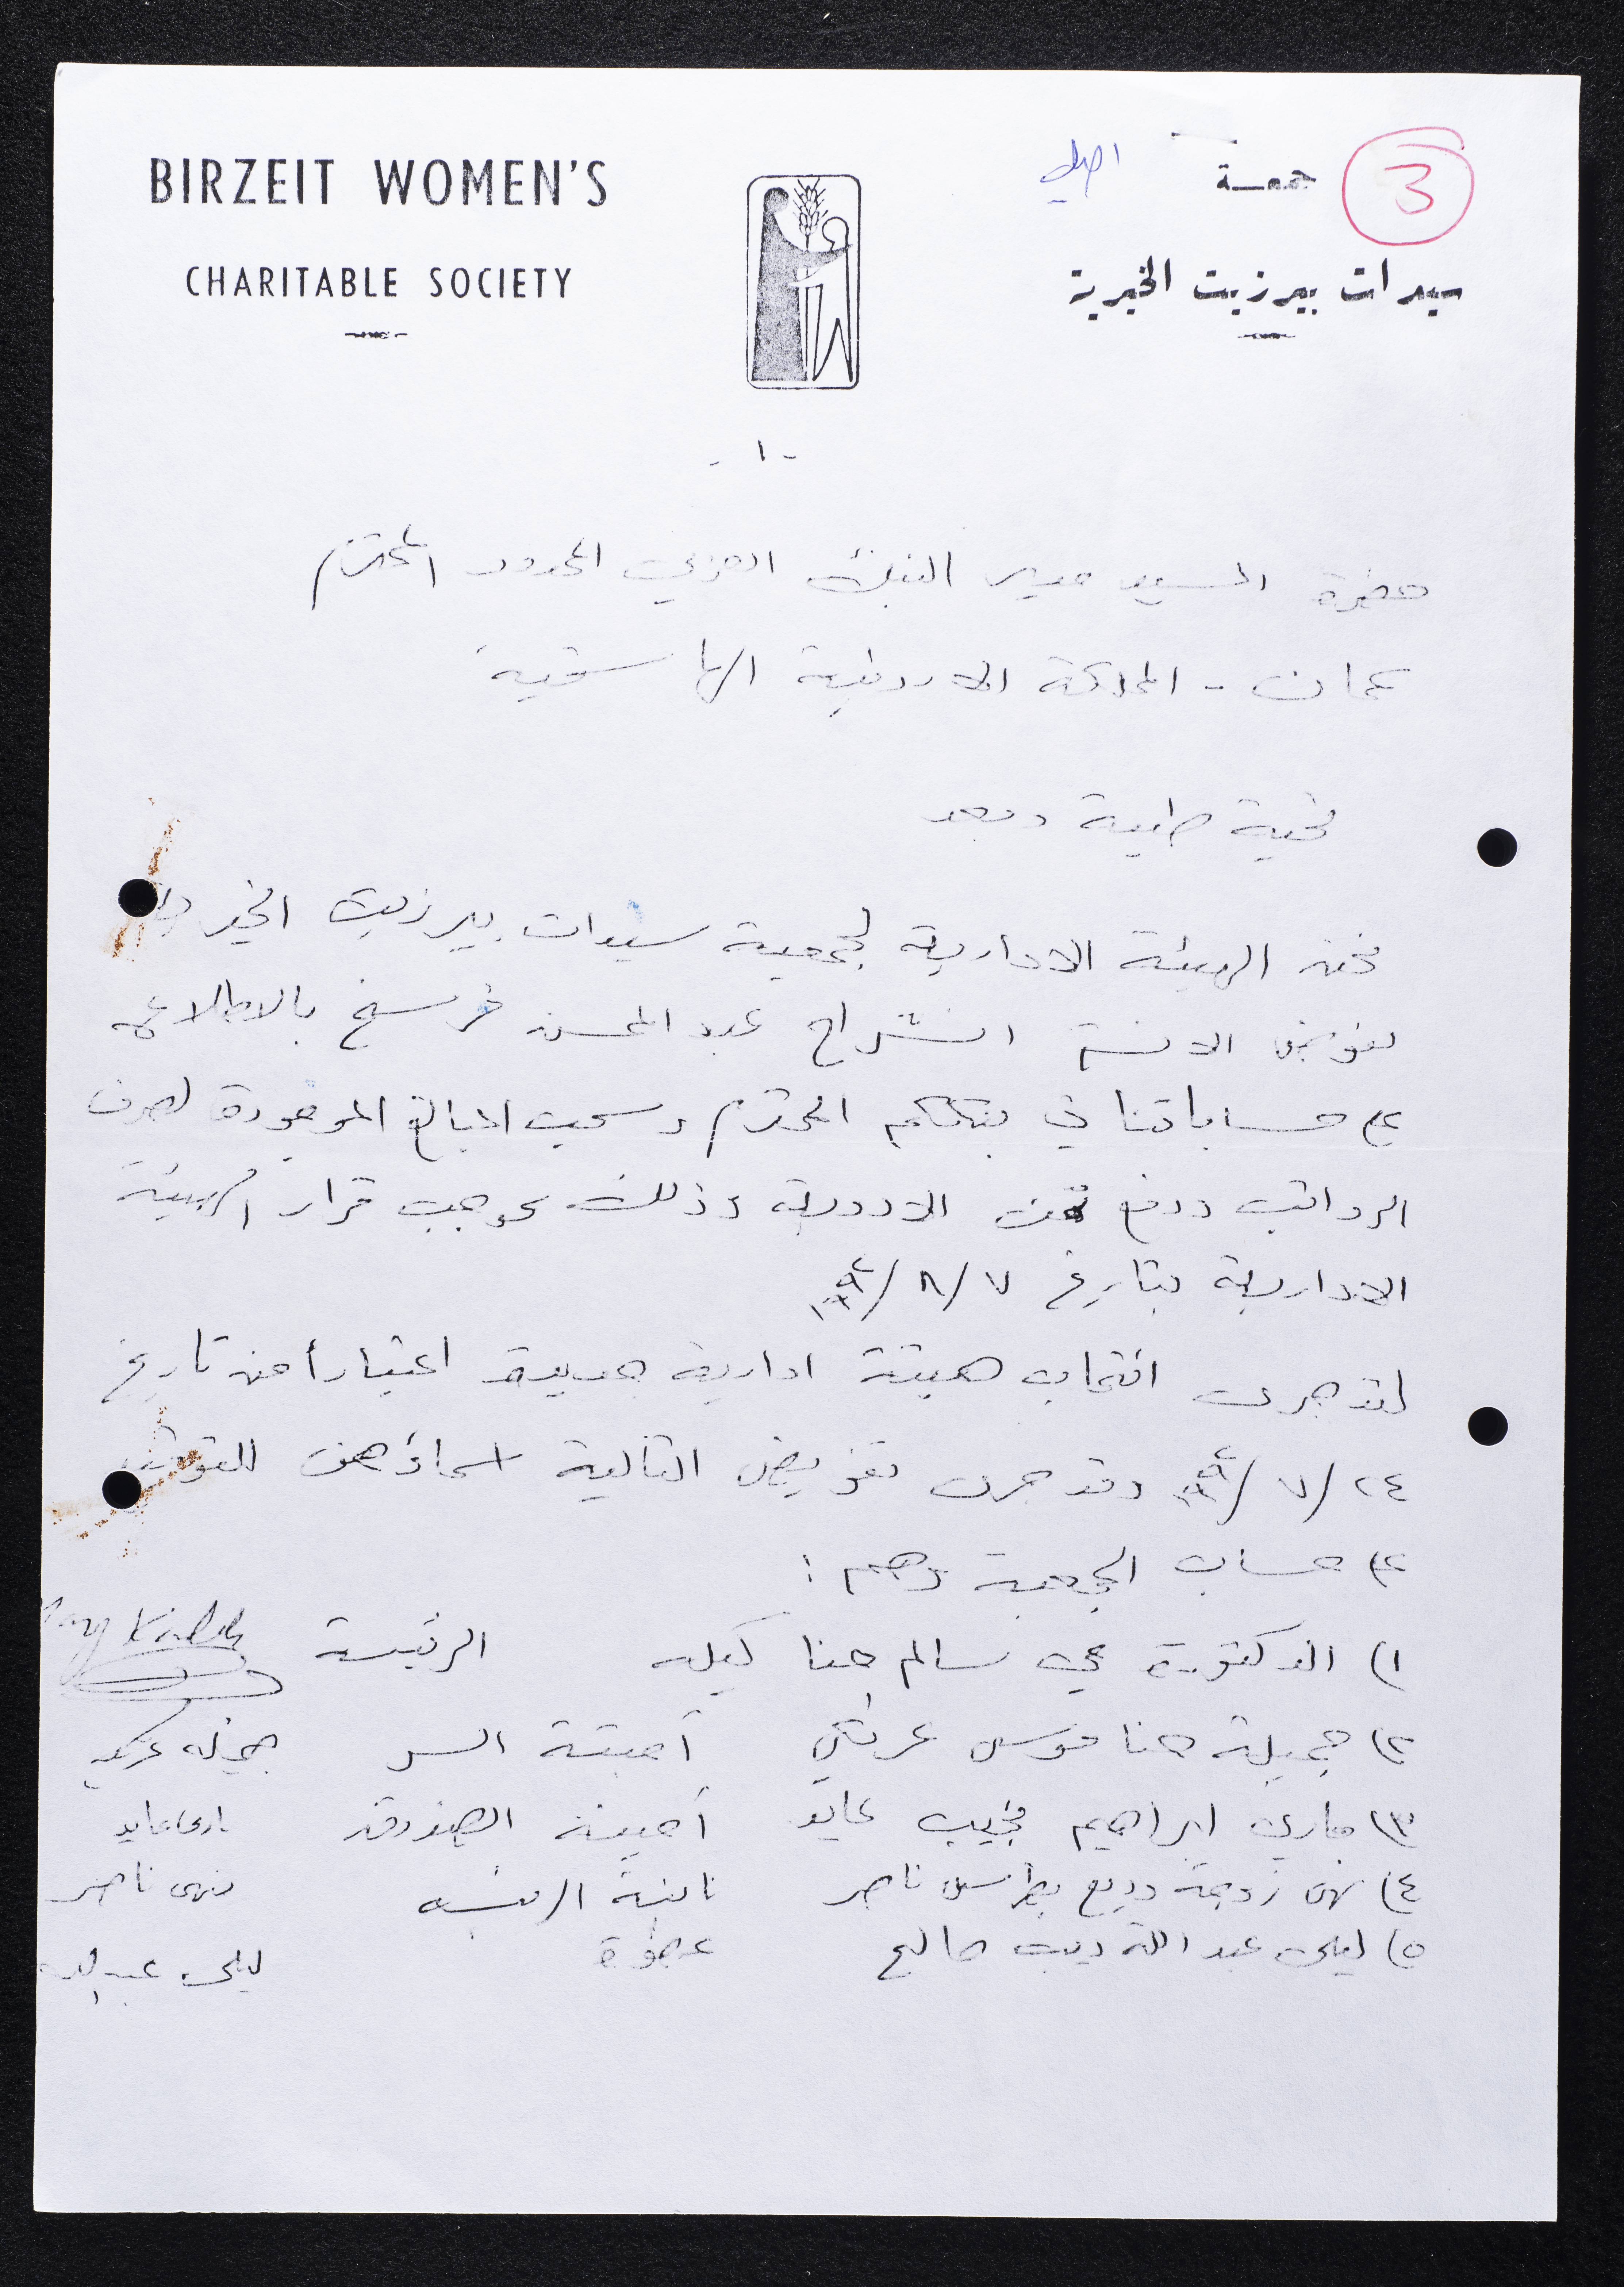 BIRZEIT WOMEN'S
CHARITABLE SOCIETY
جمعية
3
سيدات بيرزيت الخيرية
- ١ -
حضرة السيد مدير البنك العربي المحدود المحترم
عمان - المملكة الاردنية الهاشمية
تحية طيبة وبعد
نحن الهيئة الادارية لجمعية سيدات بيرزيت الخيرية
نفوض الانسة انشراح عبد المحسن فرسخ بالاطلاع
على حساباتنا في بنككم المحترم وسحب المبالغ الموجودة لصرف
الرواتب ودفع ثمن الادوية وذلك بموجب قرار الهيئة
الادارية بتاريخ ٧/٨/
لقد جرى انتخاب هيئة ادارية جديدة اعتباراً من تاريخ
٢٤/٧/ وقد جرى تفويض التالية اسماؤهن للتوقيع
على حساب الجمعية وهم :
١) الدكتورة مي سالم حنا كيله الرئيسة
٢) جميلة حنا موسى عرنكي أمينة السر
٣) ماري ابراهيم نجيب عايد أمينة الصندوق ماري عايد
٤) نهى زوجة وديع بطرس ناصر نائبة الرئيسة نهى ناصر
٥) ليلى عبد الله ديب صالح عضوة ليلى عبد الله